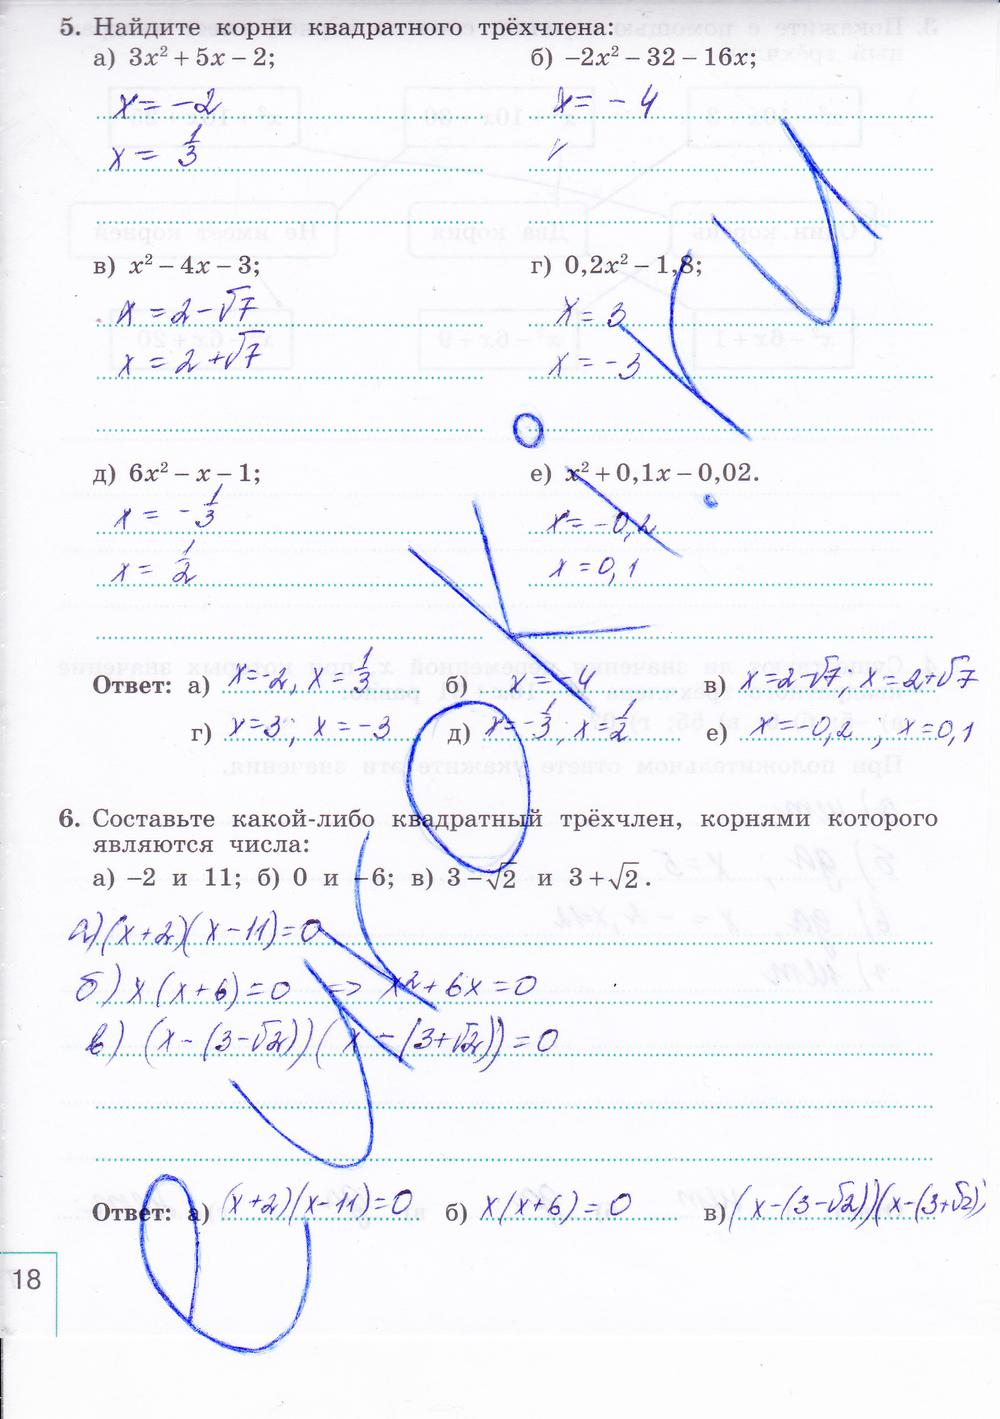 5. Найдите корни квадратного трёхчлена:
а) 3x² + 5x − 2; б) −2x² − 32 − 16x;
x = −2 x = −4
x = 1/3
в) x² − 4x − 3; г) 0,2x² − 1,8;
x = 2 − √7 x = 3
x = 2 + √7 x = −3
д) 6x² − x − 1; е) x² + 0,1x − 0,02.
x = −1/3 x = −0,2
x = 1/2 x = 0,1
Ответ: а) x = −2, x = 1/3 б) x = −4 в) x = 2−√7; x = 2+√7
г) x = 3; x = −3 д) x = −1/3; x = 1/2 е) x = −0,2, x = 0,1
6. Составьте какой-либо квадратный трёхчлен, корнями которого
являются числа:
а) −2 и 11; б) 0 и −6; в) 3 − √2 и 3 + √2.
а) (x+2)(x−11) = 0
б) x(x+6) = 0 => x² + 6x = 0
в) (x − (3−√2))(x − (3+√2)) = 0
Ответ: а) (x+2)(x−11) = 0 б) x(x+6) = 0 в) (x−(3−√2))(x−(3+√2))
18